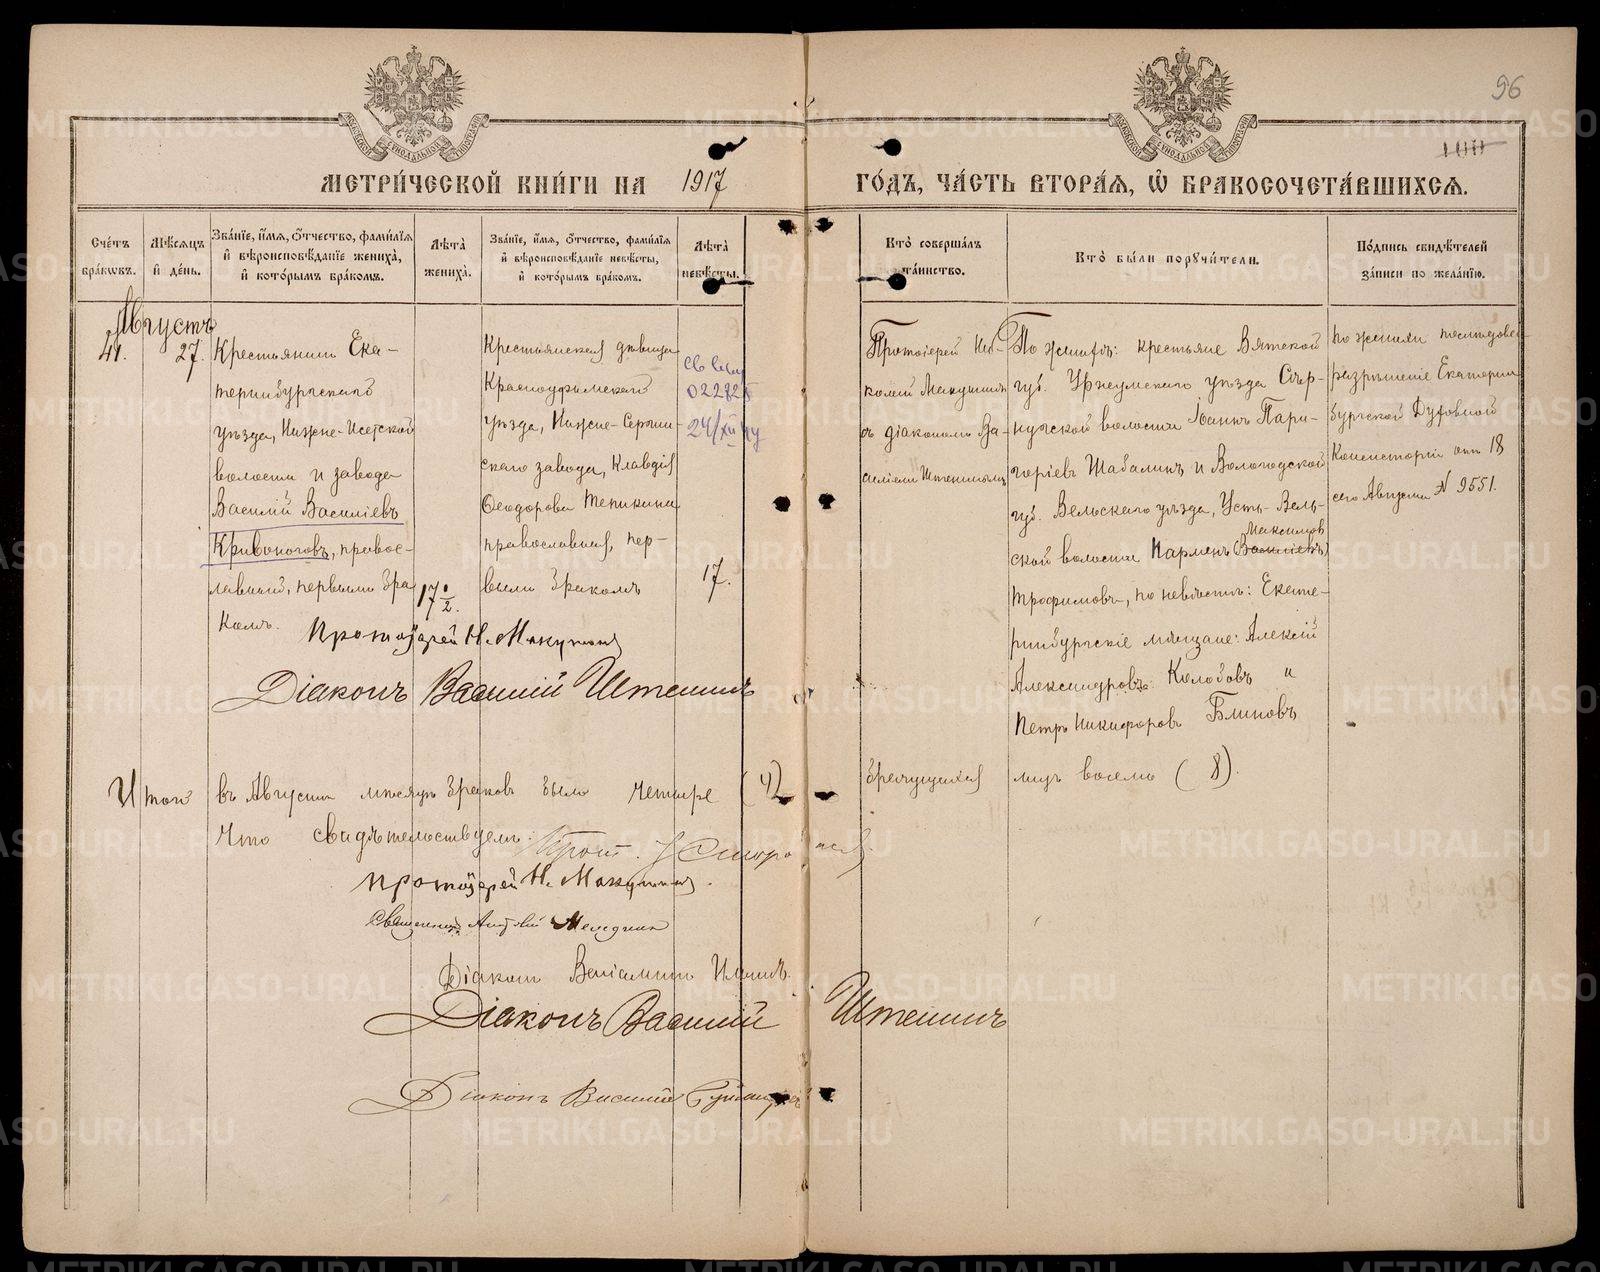 96
100
МЕТРИ́ЧЕСКОЙ КНИ́ГИ НА 1917 ГО́ДЪ, ЧА́СТЬ ВТОРА́Я, Ѡ БРАКОСОЧЕТА́ВШИХСЯ.
Сче́тъ бра́кѡвъ.
Мѣ́сяцъ и҆ де́нь.
Зва́нїе, и҆́мя, ѻ҆́тчество, фами́лїя и҆ вѣроисповѣ́данїе жениха̀, и҆ кото́рымъ бра́комъ.
Лѣ́та жениха̀.
Зва́нїе, и҆́мя, ѻ҆́тчество, фами́лїя и҆ вѣроисповѣ́данїе невѣ́сты, и҆ кото́рымъ бра́комъ.
Лѣ́та невѣ́сты.
Кто̀ соверша́лъ та́инство.
Кто̀ бы́ли порꙋчи́тели.
По́дпись свидѣ́телей за́писи по жела́нїю.
Августъ
41.
27.
Крестьянинъ Ека-
теринбургскаго
уѣзда, Нижне-Исетской
волости и завода
Василій Василіевъ
Кривоноговъ, правос-
лавный, первымъ бра
комъ.
17 ½.
Крестьянская дѣвица
Красноуфимскаго
уѣзда, Нижне-Сергин-
скаго завода, Клавдія
Ѳеодорова Тепикина
православная, пер-
вымъ бракомъ
17.
24/XII
Протоіерей Ни-
колай Макушинъ
съ діакономъ Ва-
силіемъ Штенинымъ
По женихѣ: крестьяне Вятской
губ. Уржумскаго уѣзда
волости Іоаннъ
Шабалинъ и Вологодской
губ. Вельскаго уѣзда, Усть-Вель-
Максимов
ской волости Парменъ
Трофимовъ, по невѣстѣ: Екате-
ринбургскіе мѣщане: Алексій
Александровъ Колобовъ и
Петръ Никифоровъ Блиновъ
По женихѣ послѣдовало
разрѣшеніе Екатерин
бургской Духовной
Консисторіи отъ 18
сего Августа № 9551.
Протоіерей Н. Макушинъ
Діаконъ Василій Штенинъ
Итого въ Августѣ мѣсяцѣ браковъ было четыре (4) брачущихся лицъ восемь (8).
Что свидѣтельствуемъ:
Прот.
Протоіерей Н. Макушинъ.
Священникъ
Діаконъ Веніаминъ
Діаконъ Василій Штенинъ
Діаконъ Василій
METRIKI.GASO-URAL.RU